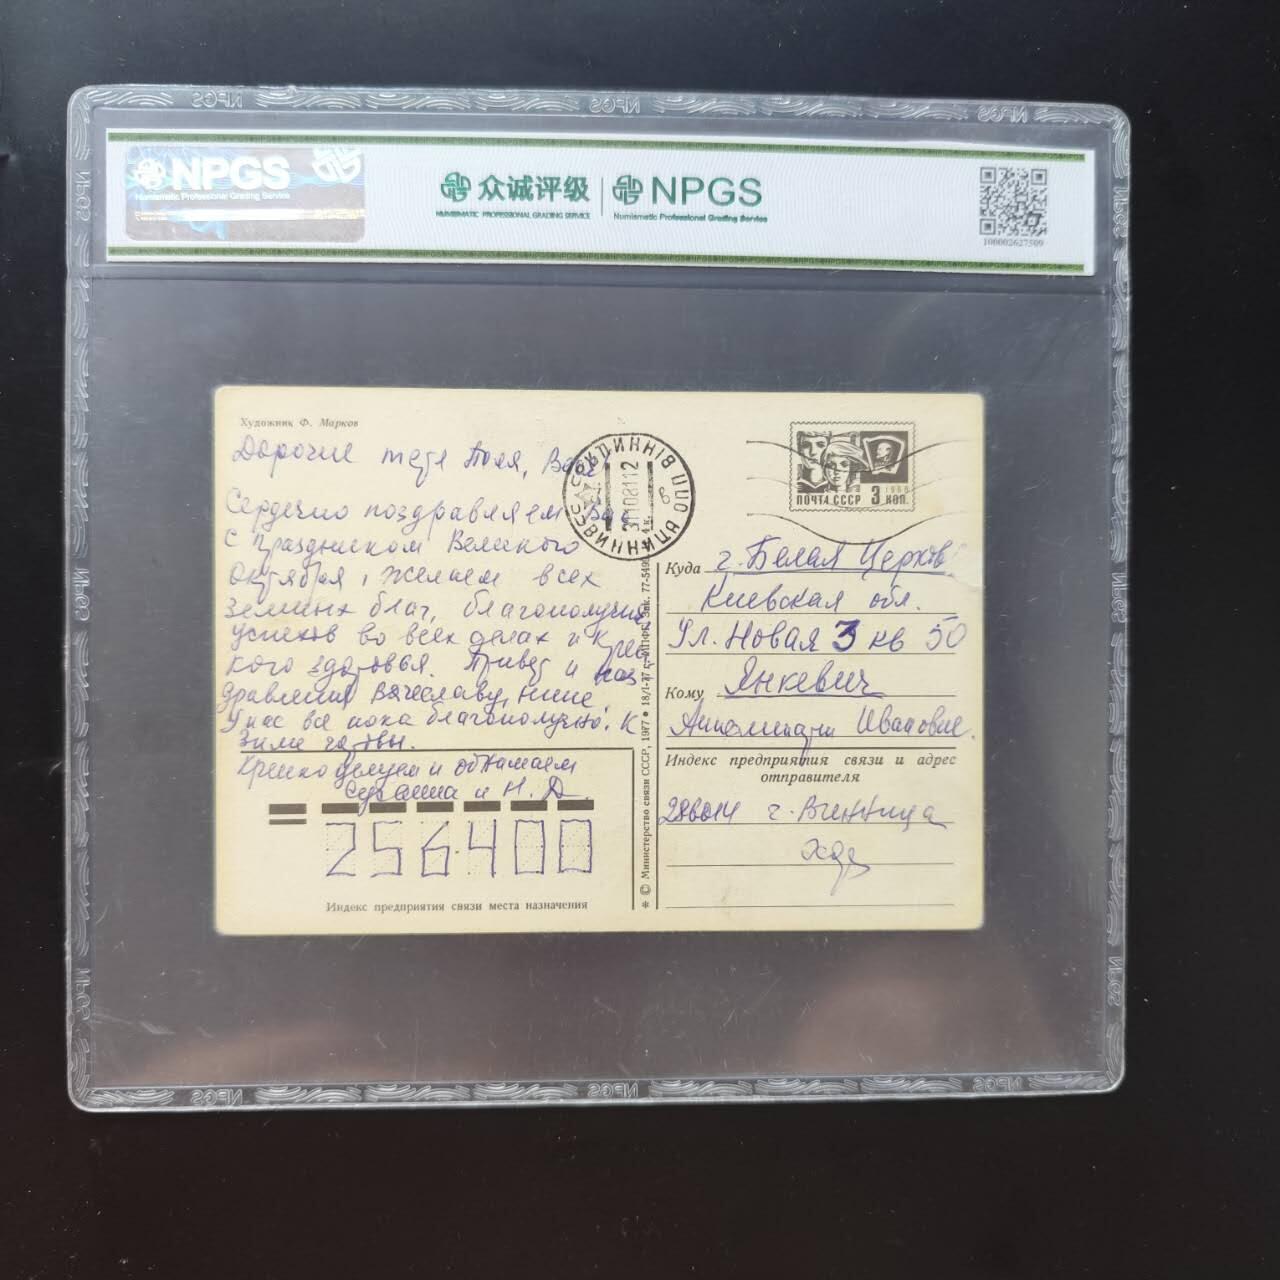 NPGS
Numismatic Professional Grading Service
众诚评级
NUMISMATIC PROFESSIONAL GRADING SERVICE
NPGS
Numismatic Professional Grading Service
100002627509
Художник Ф. Марков
Дорогие тетя Поля, Вася!
Сердечно поздравляем Вас
с праздником Великого
Октября, желаем всех
земных благ, благополучия,
успехов во всех делах и креп
кого здоровья. Привет и поз
дравления Вячеславу, Нине.
У нас все пока благополучно. К
зиме готовы.
Крепко целуем и обнимаем
и Н. Д.
256400
Индекс предприятия связи места назначения
© Министерство связи СССР, 1977
18/I-77 г.
Зак. 77-549
ВІННИЦЯ
ВИННИЦА
31108112
ПОЧТА СССР 3 КОП.
1966
Куда г. Белая Церковь
Киевская обл.
Ул. Новая 3 кв 50
Кому Янкевич
Ивановне.
Индекс предприятия связи и адрес
отправителя
286014 г. Винница